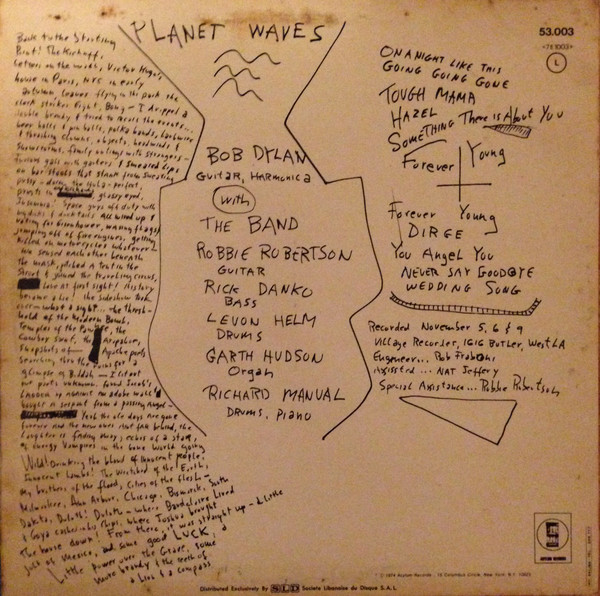 PLANET WAVES
Back to the Starting
Point! The Kickoff,
Letters on the wall, Victor Hugo's
house in Paris, NYC in early
autumn, leaves flying in the park, the
clock strikes Eight, Bong - I dropped a
double brandy & tried to recall the events...
beer halls & pin balls, polka bands, barbwire
& thrashing clowns, objects, headwinds &
Snowstorms, family outings with strangers -
Furious gals with garters & smeared lips
on bar stools that stank from sweating
pussy - doing the Hula - perfect,
priests in
glassy eyed,
Insomnia! Space guys off duty with
big dicks & ducktails All wired up &
voting for Eisenhower, waving flags &
jumping off of fire engines, getting
killed on motorcycles whatever -
We sensed each other beneath
the mask, pitched a tent in the
Street & joined the traveling circus,
Love at first sight! History
became a Lie! the sideshow took
over - what a sight... the thresh-
hold of the Modern Bomb,
Temples of the
the
Cowboy Saint, the
Arapahoe,
Snapshots of
Apache poets
searching thru the ruins for a
glimpse of Buddah - I lit out
for parts unknown, found Jacob's
Ladder up against an adobe wall &
bought a serpent from a passing Angel -
Yeah the ole days are gone
forever and the new ones Not far behind, the
Laughter is fading away, echos of a star,
of Energy Vampires in the Gone World going
Wild! Drinking the blood of innocent people,
Innocent Lambs! The Wretched of the Earth,
My brothers of the flood, Cities of the flesh -
Milwaukee, Ann Arbor, Chicago, Bismarck, South
Dakota, Duluth! Duluth - where Baudelaire Lived
& Goya cashed in his Chips, where Joshua brought
the house down! From there, it was straight up - a little
jolt of Mexico, and some good LUCK, a
Little power over the Grave, some
more brandy & the teeth of
a Lion & a compass
BOB DYLAN
GUITAR, HARMONICA
with
THE BAND
ROBBIE ROBERTSON
GUITAR
RICK DANKO
BASS
LEVON HELM
DRUMS
GARTH HUDSON
Organ
RICHARD MANUAL
DRUMS, PIANO
53.003
<7E 1003>
L
ON A NIGHT LIKE THIS
GOING GOING GONE
TOUGH MAMA
HAZEL
SOMETHING There is About You
Forever Young
Forever Young
DIRGE
You Angel You
NEVER SAY GOODBYE
WEDDING SONG
Recorded November 5, 6 & 9
Village Recorder, 1616 Butler, West LA
Engineer... Rob Fraboni
Assisted... NAT Jeffery
Special Assistance... Robbie Robertson
ASYLUM RECORDS
℗ © 1974 Asylum Records, 15 Columbus Circle, New York, N.Y. 10023
Distributed Exclusively By SLD Societe Libanaise du Disque S.A.L.